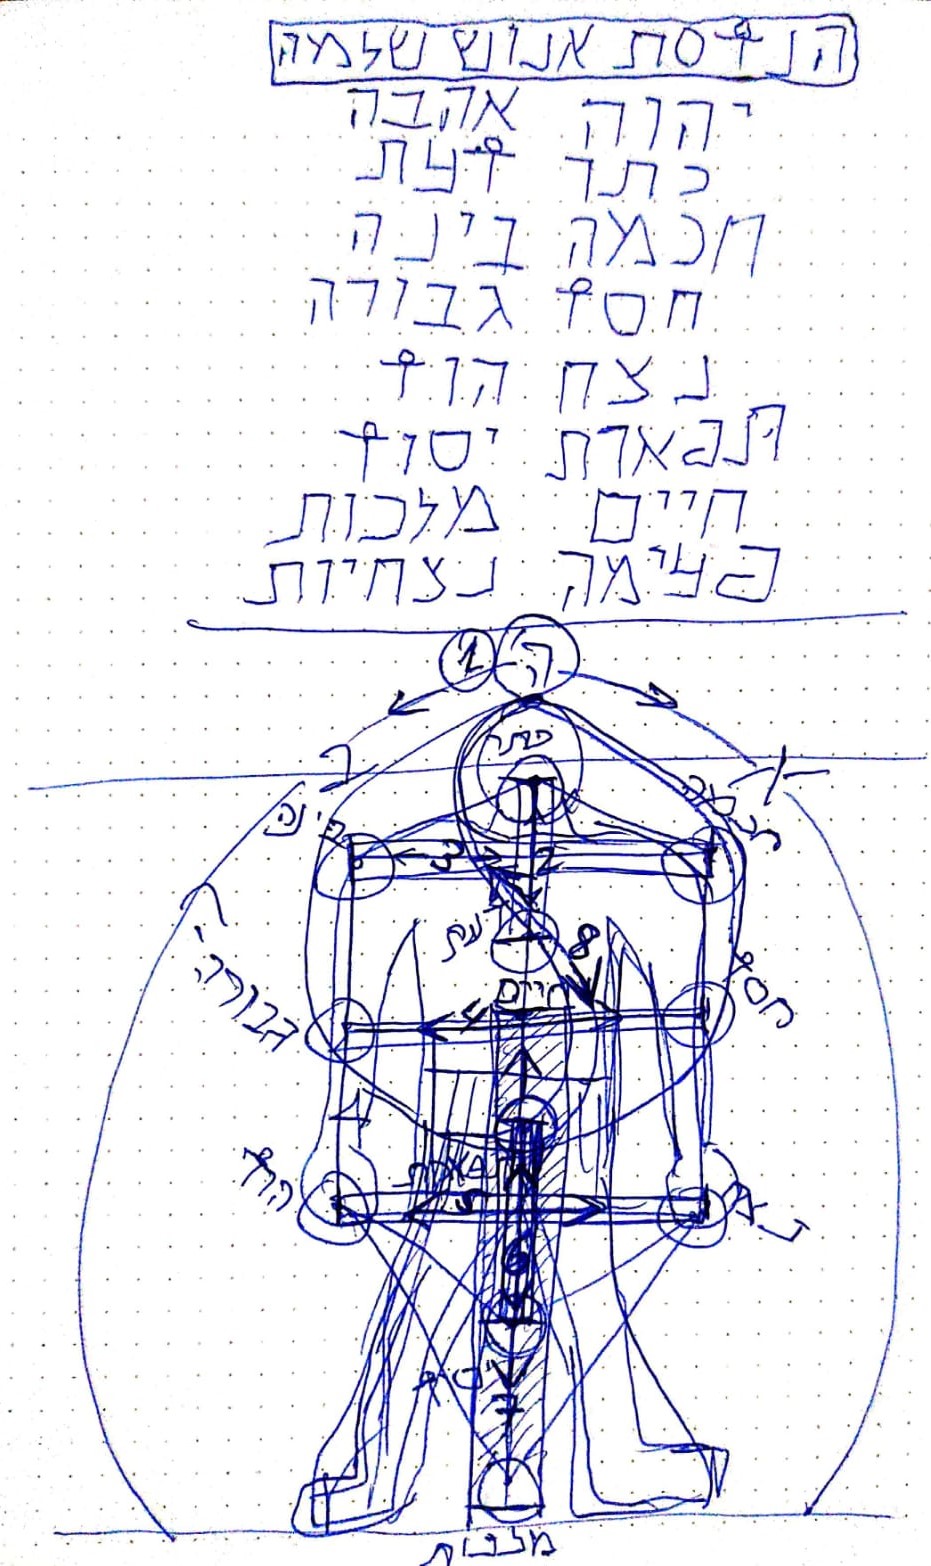 הנדסת אנוש שלמה
יהוה אהבה
כתר דעת
חכמה בינה
חסד גבורה
נצח הוד
תפארת יסוד
חיים מלכות
פעימה נצחיות
1 ה
כתר
ו
בינה חכמה
3 2
דעת
8
חסד
גבורה
חיים
4
תפארת
הוד נצח
5
6
יסוד
7
מלכות